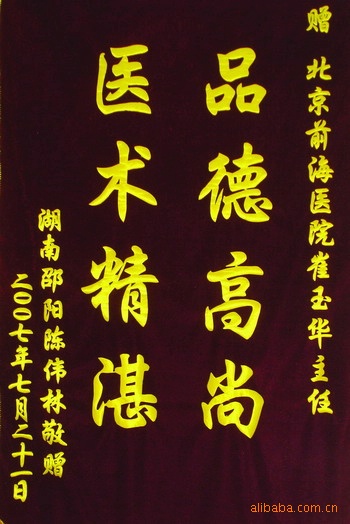 赠 北京前海医院崔玉华主任
品德高尚
医术精湛
湖南邵阳陈伟林敬赠
二〇〇七年七月二十一日
alibaba.com.cn